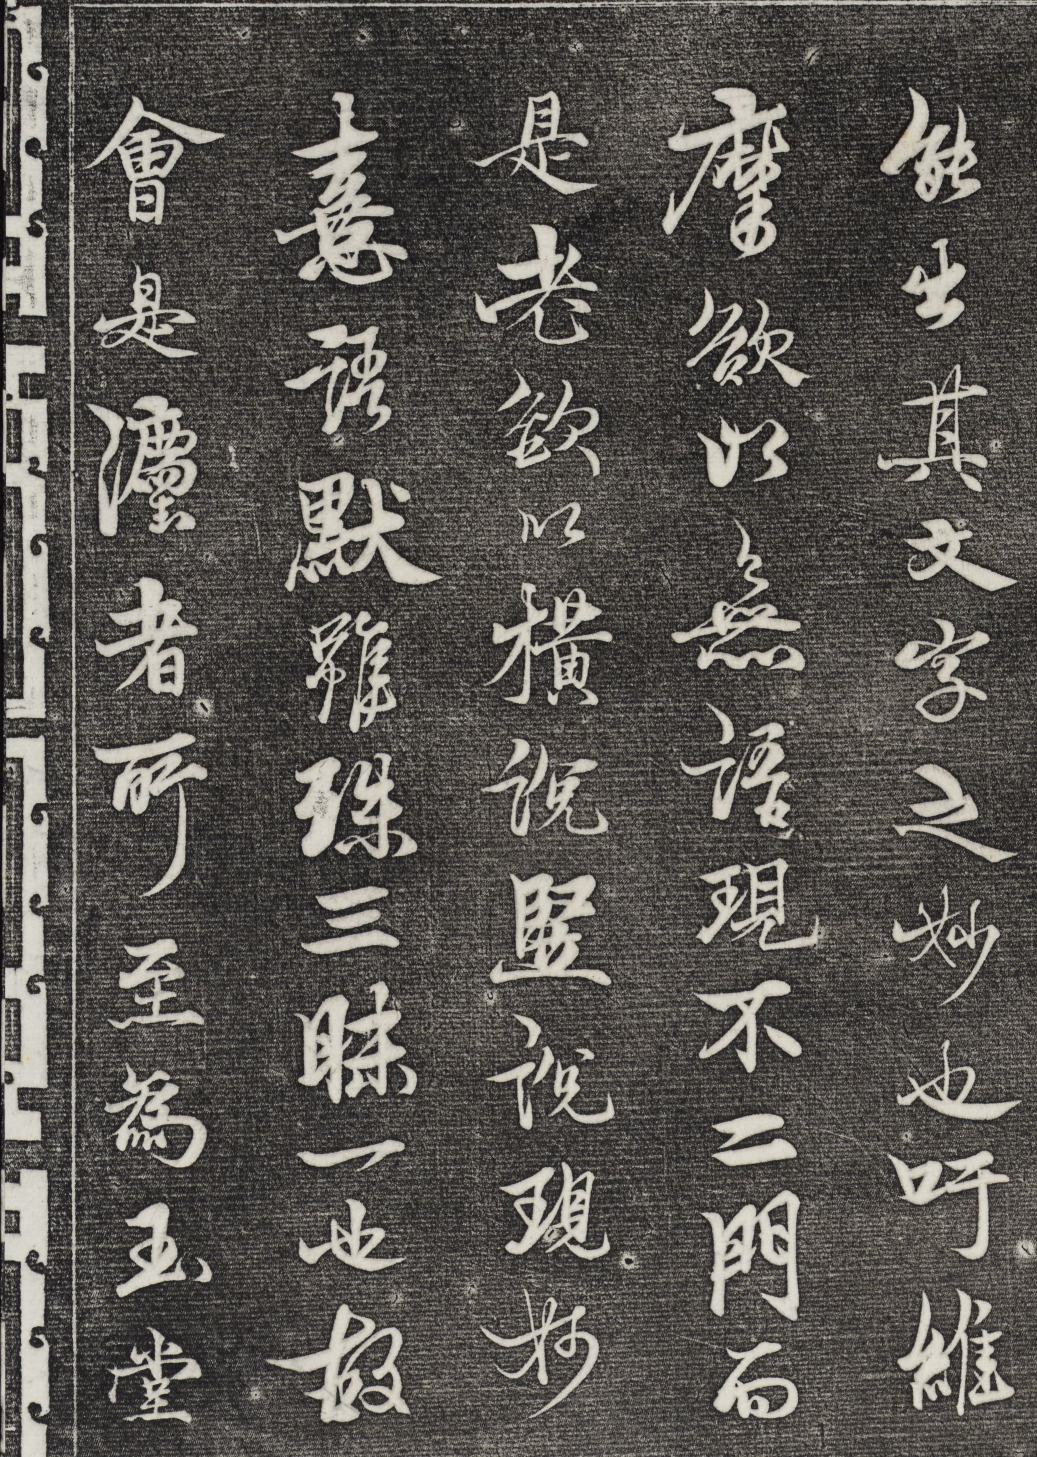 能出其文字之妙也吁維
摩欲以無語現不二門而
是老欲以橫說竪說現妙
憙語默雖殊三昧一也故
會是灋者所至為玉堂